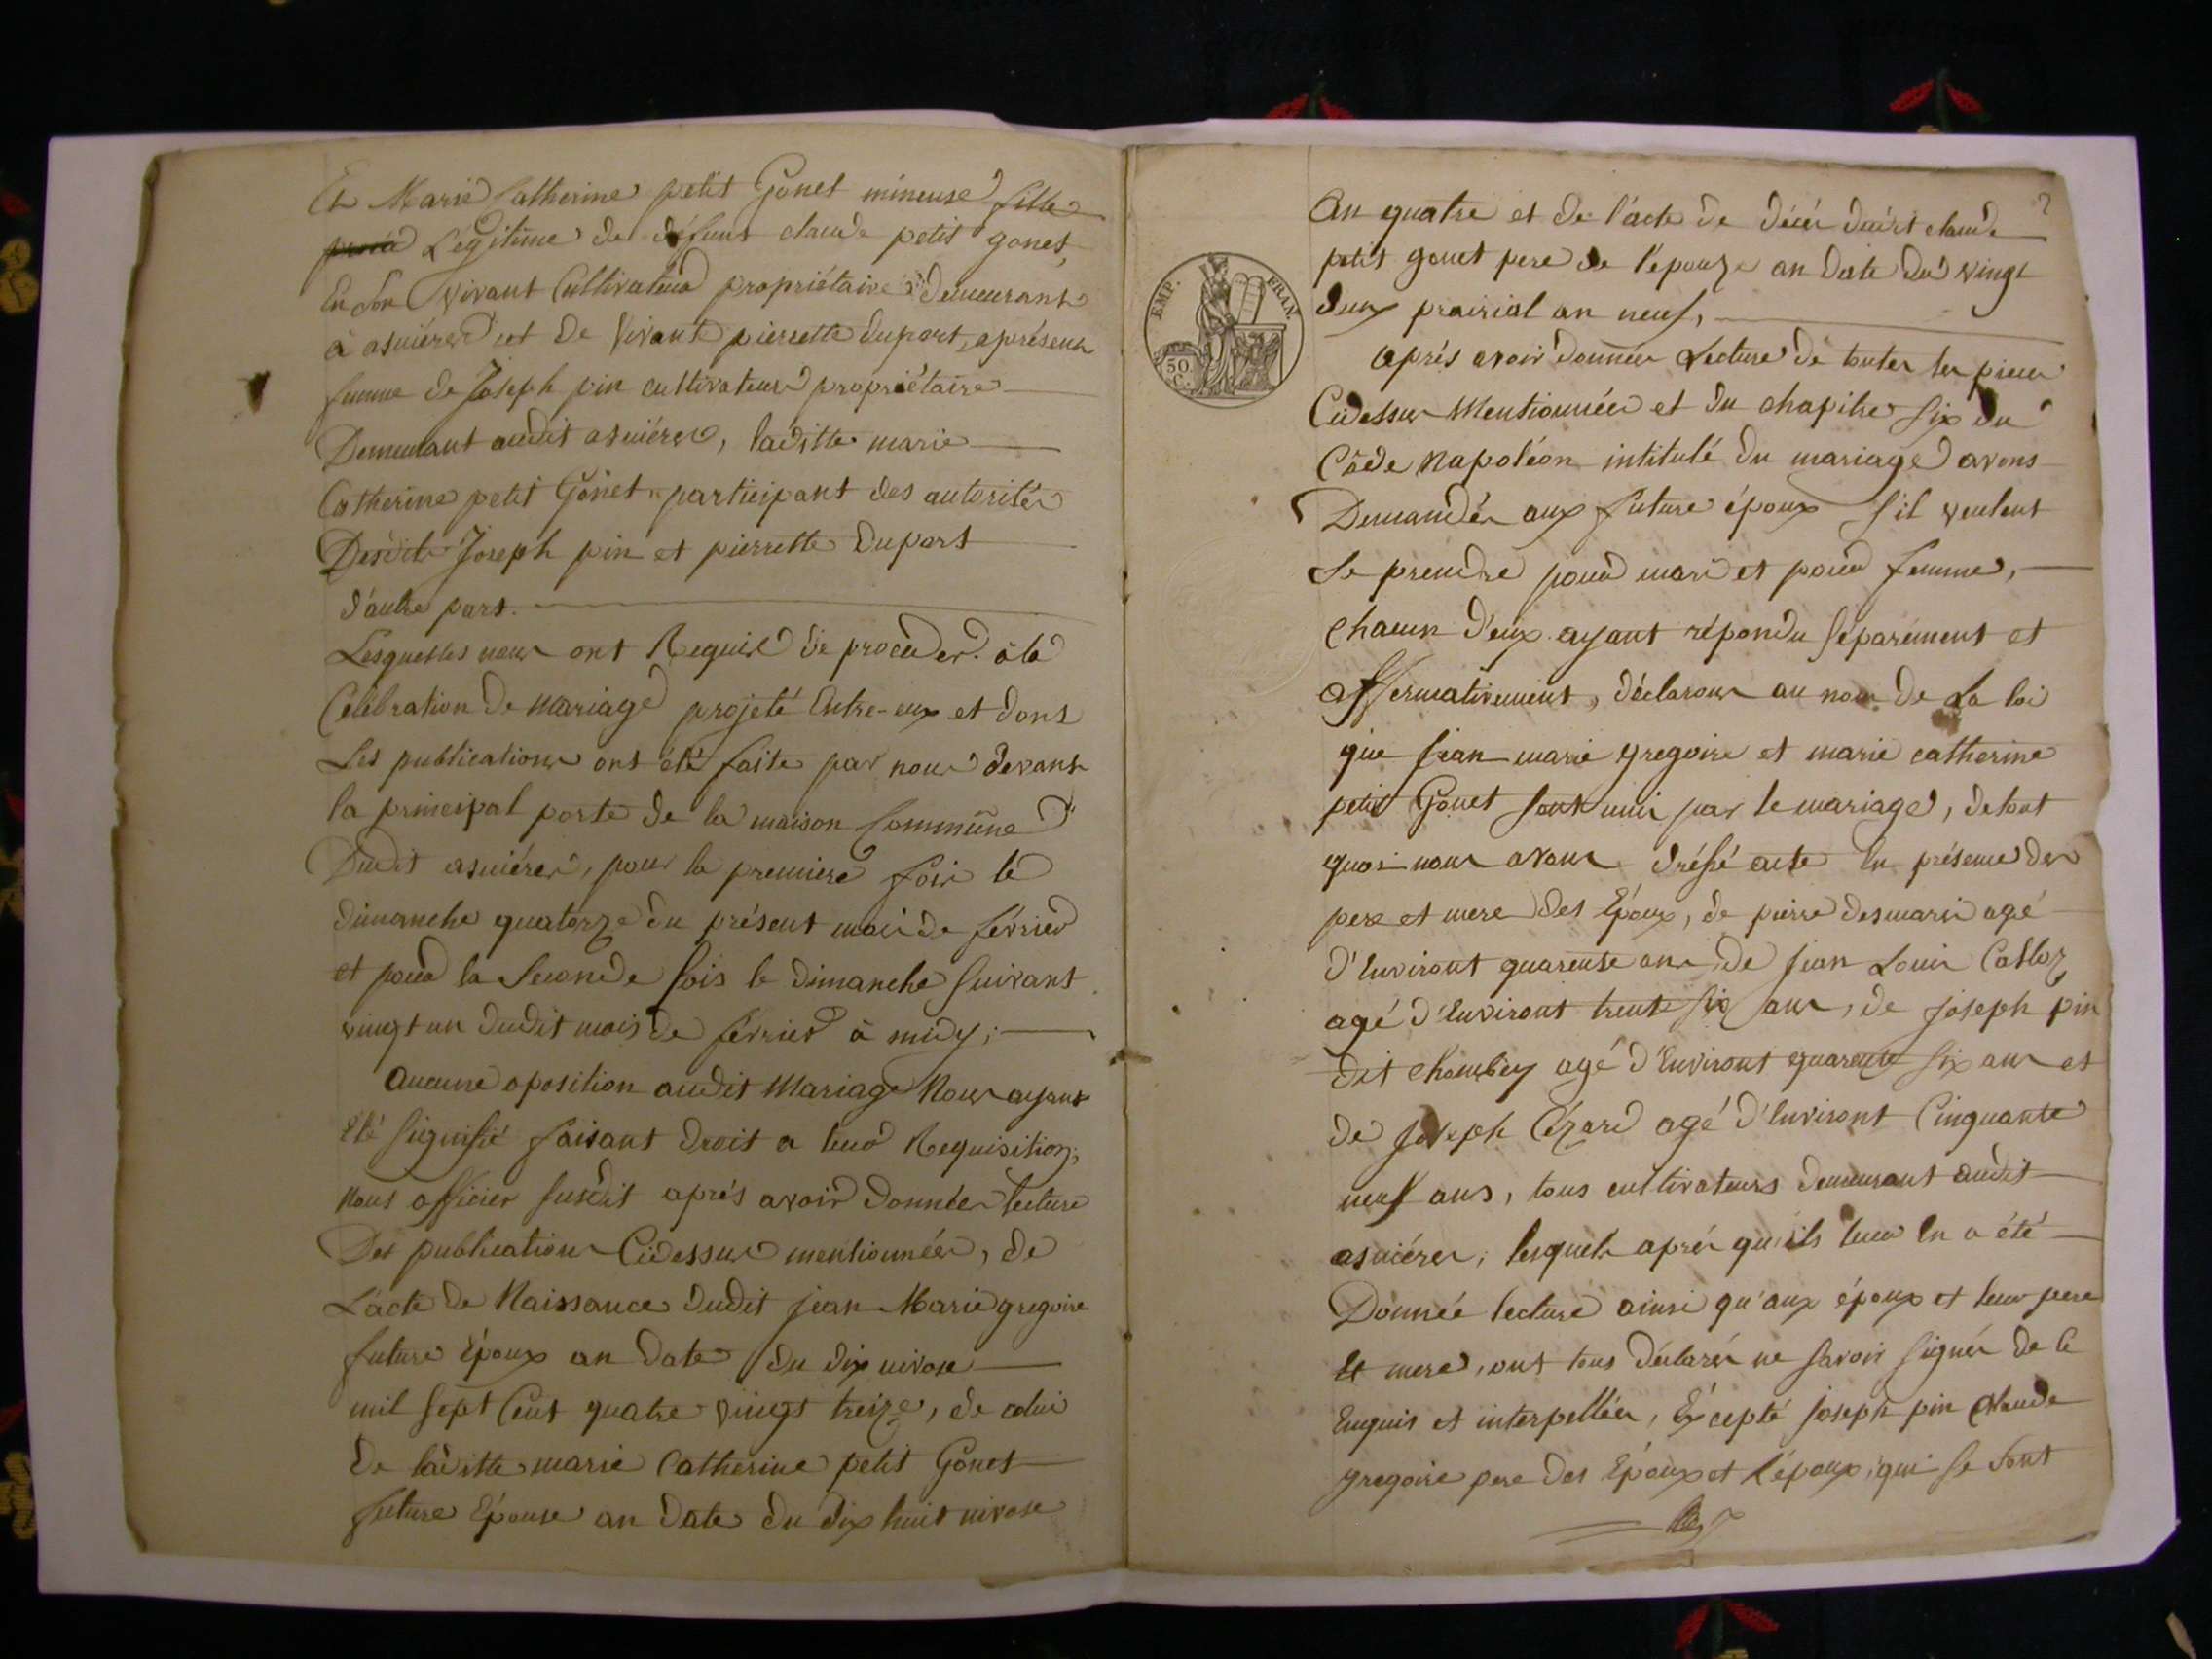 Et Marie Catherine petit Gonet mineuse fille
Légitime de défunt claude petit gonet,
En Son vivant Cultivateur propriétaire demeurant
à asnières et de vivante pierrette dupart, aprésent
femme de Joseph pin cultivateur propriétaire
Demeurant audit asnières, laditte marie
Catherine petit Gonet participant des autorités
Desdits Joseph pin et pierrette dupart
d'autre part.
Lesquelles nous ont Requis de proceder à la
Célébration de mariage projeté Entre-eux et dont
Les publications ont été faite par nous devant
la principal porte de la maison Commune
Dudit asnières, pour la premiere fois le
dimanche quatorze du présent mois de février
et pour la Seconde fois le dimanche Suivant
vingt un dudit mois de février à midy;
aucune oposition audit Mariage Nous ayant
Eté Signifié faisant droit a leur Requisition;
Nous officier Susdit aprés avoir donnée lecture
Des publications Cidessus mentionnées, de
L'acte de Naissance dudit jean Marie gregoire
future Epoux an date du dix nivose
mil Sept Cent quatre vingt treize, de celui
de laditte marie Catherine petit Gonet
future Epouse an date du dix huit nivose
2
An quatre et de l'acte de décés dudit claude
petit gonet pere de l'epouze an date du vingt
deux prairial an neuf,
EMP. FRAN.
50 C.
aprés avoir donnée Lecture de toutes les pieces
Cidessus Mentionnées et du chapitre Six du
Côde Napoléon intitulé du mariage avons
Demandés aux future époux S'il veulent
Se prendre pour mari et pour femme,
chacun d'eux ayant répondu Séparément et
affermativement, déclarons au nom de La loi
que Jean marie gregoire et marie catherine
petit Gonet Sont unis par le mariage, de tout
quoi nous avons dréssé acte En présence des
pere et mere des Epoux, de pierre desmaris agé
d'Environt quarente ans, de Jean Louis
agé d'Environt trente Six ans, de Joseph pin
dit chambey agé d'Environt quarente Six ans et
de Joseph Cézard agé d'Environt Cinquante
neuf ans, tous cultivateurs demeurant audit
asnières, lesquels aprés qu'ils leur En a été
Donnée lecture ainsi qu'aux époux et leur pere
et mere, ont tous déclarés ne Savoir Signér de ce
Enquis et interpellés, Excepté Joseph pin claude
gregoire pere des Epoux et l'époux, qui Se Sont